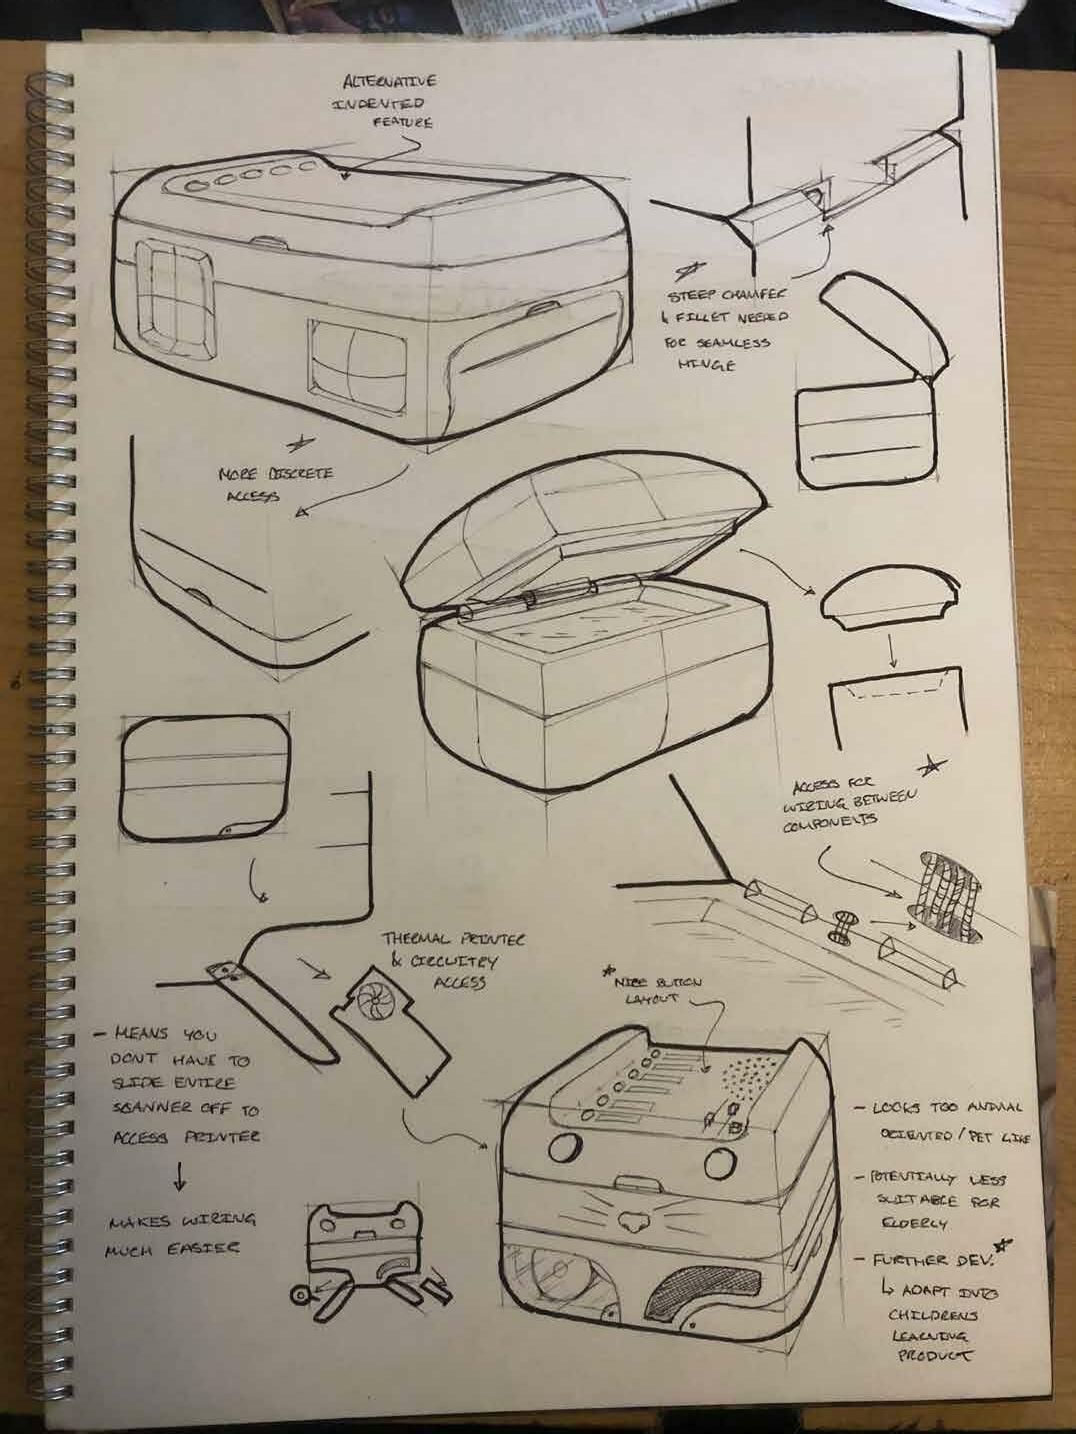 ALTERNATIVE
INDENTED
FEATURE
STEEP CHAMFER
& FILLET NEEDED
FOR SEAMLESS
HINGE
MORE DISCRETE
ACCESS
ACCESS FOR
WIRING BETWEEN
COMPONENTS
THERMAL PRINTER
& CIRCUITRY
ACCESS
* NICE BUTTON
LAYOUT
- MEANS YOU
DONT HAVE TO
SLIDE ENTIRE
SCANNER OFF TO
ACCESS PRINTER
MAKES WIRING
MUCH EASIER
- LOOKS TOO ANIMAL
ORIENTED / PET LIKE
- POTENTIALLY LESS
SUITABLE FOR
ELDERLY
- FURTHER DEV.
↳ ADAPT INTO
CHILDRENS
LEARNING
PRODUCT